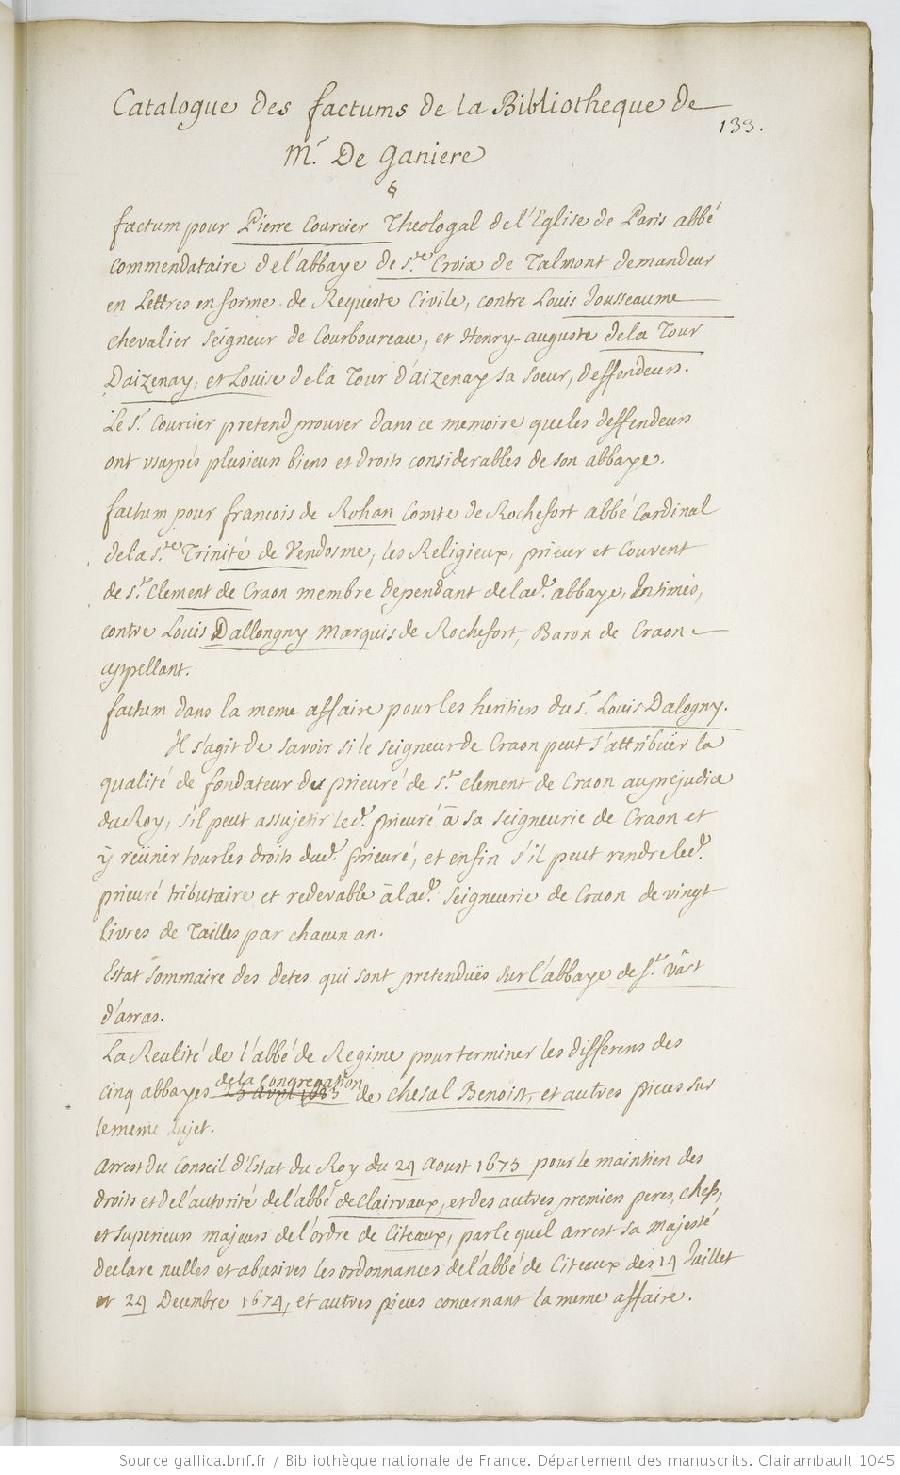 Catalogue des factums de la Bibliotheque de
133.
Mr. De Ganiere
factum pour Pierre Courcier Theologal de l'Eglise de Paris abbé
commendataire de l'abbaye de Ste. Croix de Talmont demandeur
en Lettres en forme de Requeste Civile, contre Louis Jousseaume
chevalier seigneur de Courboureau, et Henry-auguste de la Tour
Daizenay, et Louise de la Tour d'aizenay sa soeur, deffendeurs.
Le Sr. Courcier pretend prouver dans ce memoire que les deffendeurs
ont usurpés plusieurs biens et droits considerables de son abbaye.
factum pour francois de Rohan Comte de Rochefort abbé Cardinal
de la Ste. Trinité de Vendosme, les Religieux, prieur et Couvent
de St. Clement de Craon membre dependant de lade. abbaye, Intimés,
contre Louis Dallongny Marquis de Rochefort, Baron de Craon
appellant.
factum dans la meme affaire pour les heritiers du Sr. Louis Dalogny.
Il s'agit de savoir si le seigneur de Craon peut s'attribuër la
qualité de fondateur du prieuré de St. Clement de Craon au prejudice
du Roy, s'il peut assujetir led. prieuré à sa seigneurie de Craon et
y reünir tous les droits dud. prieuré, et enfin s'il peut rendre led.
prieuré tributaire et redevable à lade. Seigneurie de Craon de vingt
livres de Tailles par chacun an.
Estat sommaire des detes qui sont pretenduës sur l'abbaye de St. Vâst
d'arras.
La Realité de l'abbé de Regime pour terminer les differens des
cinq abbayes de la Congregation de Chesal Benoist, et autres pieces sur
le meme sujet.
Arrest du Conseil d'Estat du Roy du 24 aoust 1675 pour le maintien des
droits et de l'autorité de l'abbé de Clairvaux, et des autres premiers peres, chefs,
et superieurs majeurs de l'ordre de Citeaux, par le quel arrest sa majesté
declare nulles et abusives les ordonnances de l'abbé de Citeaux des 14 Juillet
et 24 Decembre 1674, et autres pieces concernant la meme affaire.
Source gallica.bnf.fr / Bibliothèque nationale de France. Département des manuscrits. Clairambault 1045